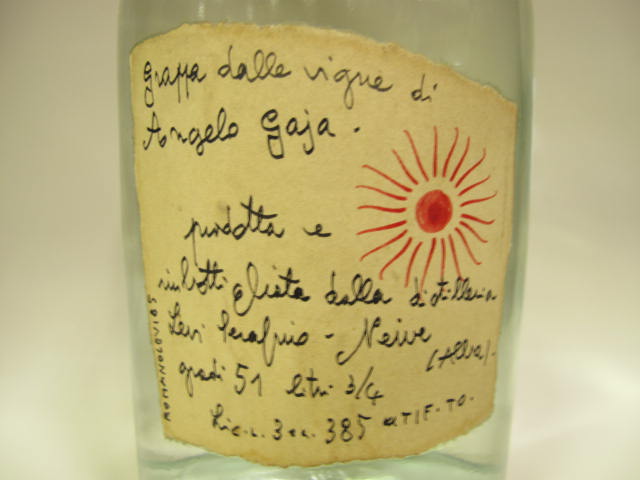 Grappa dalle vigne di
Angelo Gaja.
prodotta e
imbottigliata dalla distilleria
Levi Serafino - Neive
(Alba)-
gradi 51 litri 3/4
Lic. n. 3 385 UTIF-TO.
ROMANOLEVI85